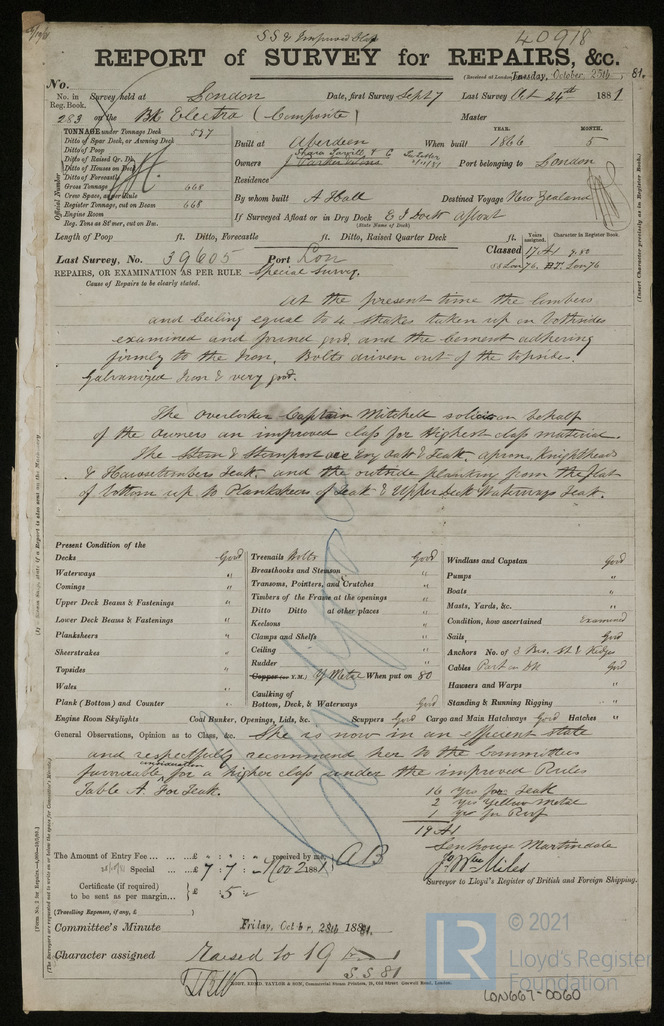 S S & Improved Class
40918
REPORT of SURVEY for REPAIRS, &c.
(Received at London Tuesday, October, 25th 81.
No.
No. in Reg. Book. Survey held at London Date, first Survey Sept 7 Last Survey Oct 24th 1881
283 on the Bk Electra (Composite) Master
TONNAGE under Tonnage Deck 537
Ditto of Spar Deck, or Awning Deck
Ditto of Poop
Ditto of Raised Qr. Dk.
Ditto of Houses on Deck
Ditto of Forecastle
Gross Tonnage 668
Crew Space, under Rule
Register Tonnage, cut on Beam 668
Engine Room
Reg. Ton as St'mer, cut on Bm.
Official Number
Built at Aberdeen When built YEAR. 1866 MONTH. 5
Owners Shaw Savill & C
Port belonging to London
Residence
By whom built A Hall Destined Voyage New Zealand
If Surveyed Afloat or in Dry Dock E I Dock Afloat
(State Name of Dock)
Length of Poop ft. Ditto, Forecastle ft. Ditto, Raised Quarter Deck ft.
Years assigned. Character in Register Book.
Classed 17 A1 9.80
SS Lon 76. BT. Lon 76
(Insert Character precisely as in Register Book.)
Last Survey, No. 39605 Port Lon
REPAIRS, OR EXAMINATION AS PER RULE Special Survey.
Cause of Repairs to be clearly stated.
At the present time the limbers
and ceiling equal to 4 strakes taken up on both sides
examined and found good, and the cement adhering
firmly to the Iron. Bolts driven out of the topsides.
Galvanized Iron & very good.
The Overlooker Captain Mitchell solicits on behalf
of the owners an improved class for Highest class material.
The Stem & Sternpost are Eng Oak & Teak, apron, Knightheads
& Hawsetimbers Teak. and the outside planking from the flat
of bottom up to Plankshears of Teak & Upper Deck Waterways Teak.
Present Condition of the
Decks Good
Waterways "
Comings "
Upper Deck Beams & Fastenings "
Lower Deck Beams & Fastenings "
Planksheers "
Sheerstrakes "
Topsides "
Wales "
Plank (Bottom) and Counter "
Treenails Bolts Good
Breasthooks and Stemson "
Transoms, Pointers, and Crutches "
Timbers of the Frame at the openings "
Ditto Ditto at other places "
Keelsons "
Clamps and Shelfs "
Ceiling "
Rudder "
Copper (or Y.M.) Y Metal When put on 80
Caulking of
Bottom, Deck, & Waterways Good
Windlass and Capstan Good
Pumps "
Boats "
Masts, Yards, &c. "
Condition, how ascertained Examined
Sails Good
Anchors No. of 3 Brs. St & Kedges
Cables Part on Dk Good
Hawsers and Warps "
Standing & Running Rigging "
Engine Room Skylights Coal Bunker, Openings, Lids, &c. Scuppers Good Cargo and Main Hatchways Good Hatches "
General Observations, Opinion as to Class, &c. She is now in an efficient state
and respectfully recommend her to the Committees
favourable consideration for a higher class under the improved Rules
Table A. For Teak.
16 yrs for Teak
2 yrs Yellow Metal
1 yrs for Roof
19 A1
Senhouse Martindale
Jo Wm Miles
Surveyor to Lloyd's Register of British and Foreign Shipping.
The Amount of Entry Fee ... £ " : " : " received by me,
Special £ 7 : 7 : - Nov 2 1881 AB
Certificate (if required)
to be sent as per margin £ : 5 :
(Travelling Expenses, if any, £ )
Committee's Minute Friday, Octbr. 28th 1881.
Character assigned Raised to 19
S.S 81
ROBT. EDMD. TAYLOR & SON, Commercial Steam Printers, 19, Old Street, Goswell Road, London.
© 2021
LR
Lloyd's Register
Foundation
LON667-0060